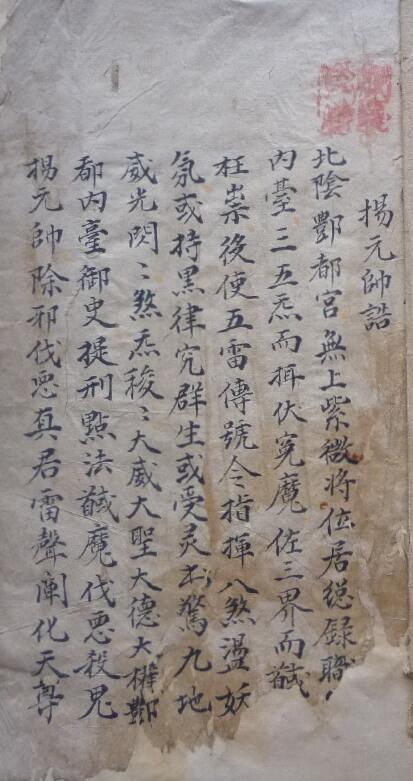 楊元帥誥
北陰酆都宮無上紫微將位居總錄職
內臺三五炁而揖伏冤魔佐三界而馘
枉祟後使五雷傳號令指揮八煞盪妖
氛或持黑律究群生或受灵書驚九地
威光閃〻煞炁稜〻大威大聖大德大權酆
都內臺御史提刑㸃法馘魔伐惡殺鬼
楊元帥除邪伐惡真君雷聲闡化天尊